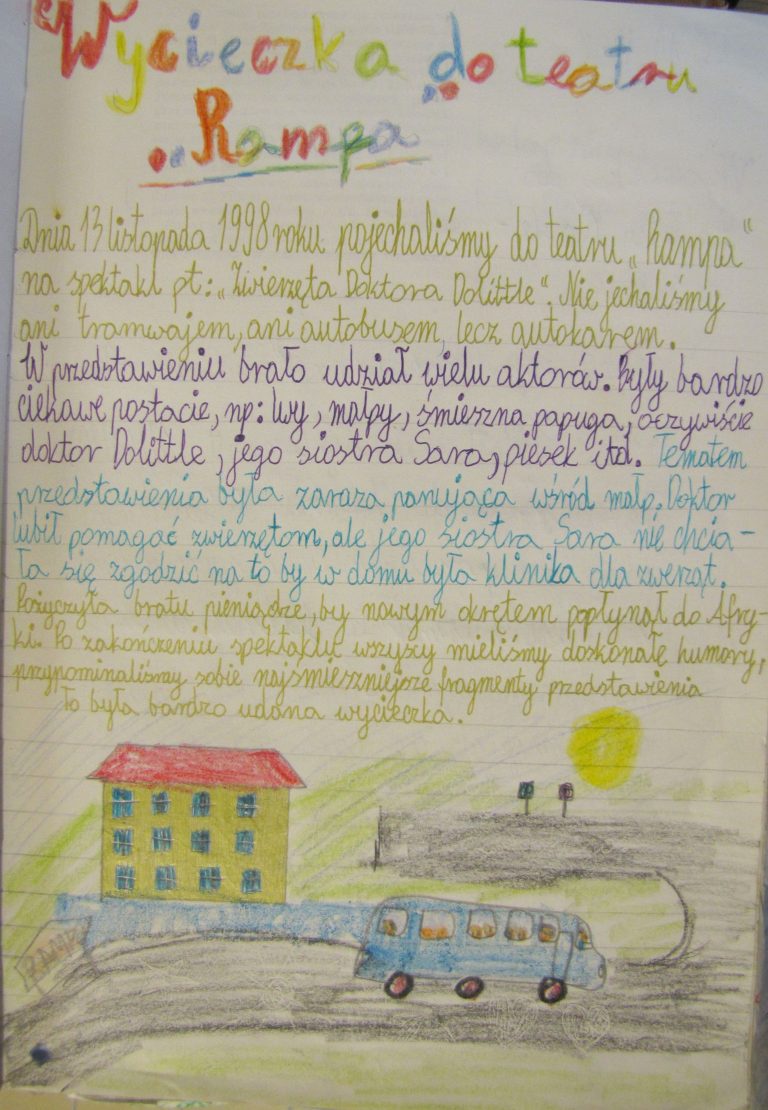 Wycieczka do teatru
„Rampa"
Dnia 13 listopada 1998 roku pojechaliśmy do teatru „Rampa"
na spektakl pt: „Zwierzęta Doktora Dolittle". Nie jechaliśmy
ani tramwajem, ani autobusem, lecz autokarem.
W przedstawieniu brało udział wielu aktorów. Były bardzo
ciekawe postacie, np: lwy, małpy, śmieszna papuga, oczywiście
doktor Dolittle, jego siostra Sara, piesek itd. Tematem
przedstawienia była zaraza panująca wśród małp. Doktor
lubił pomagać zwierzętom, ale jego siostra Sara nie chcia-
ła się zgodzić na to by w domu była klinika dla zwerząt.
Pożyczyła bratu pieniądze, by nowym okrętem popłynął do Afry-
ki. Po zakończeniu spektaklu wszyscy mieliśmy doskonałe humory,
przypominaliśmy sobie najśmieszniejsze fragmenty przedstawienia
To była bardzo udana wycieczka.